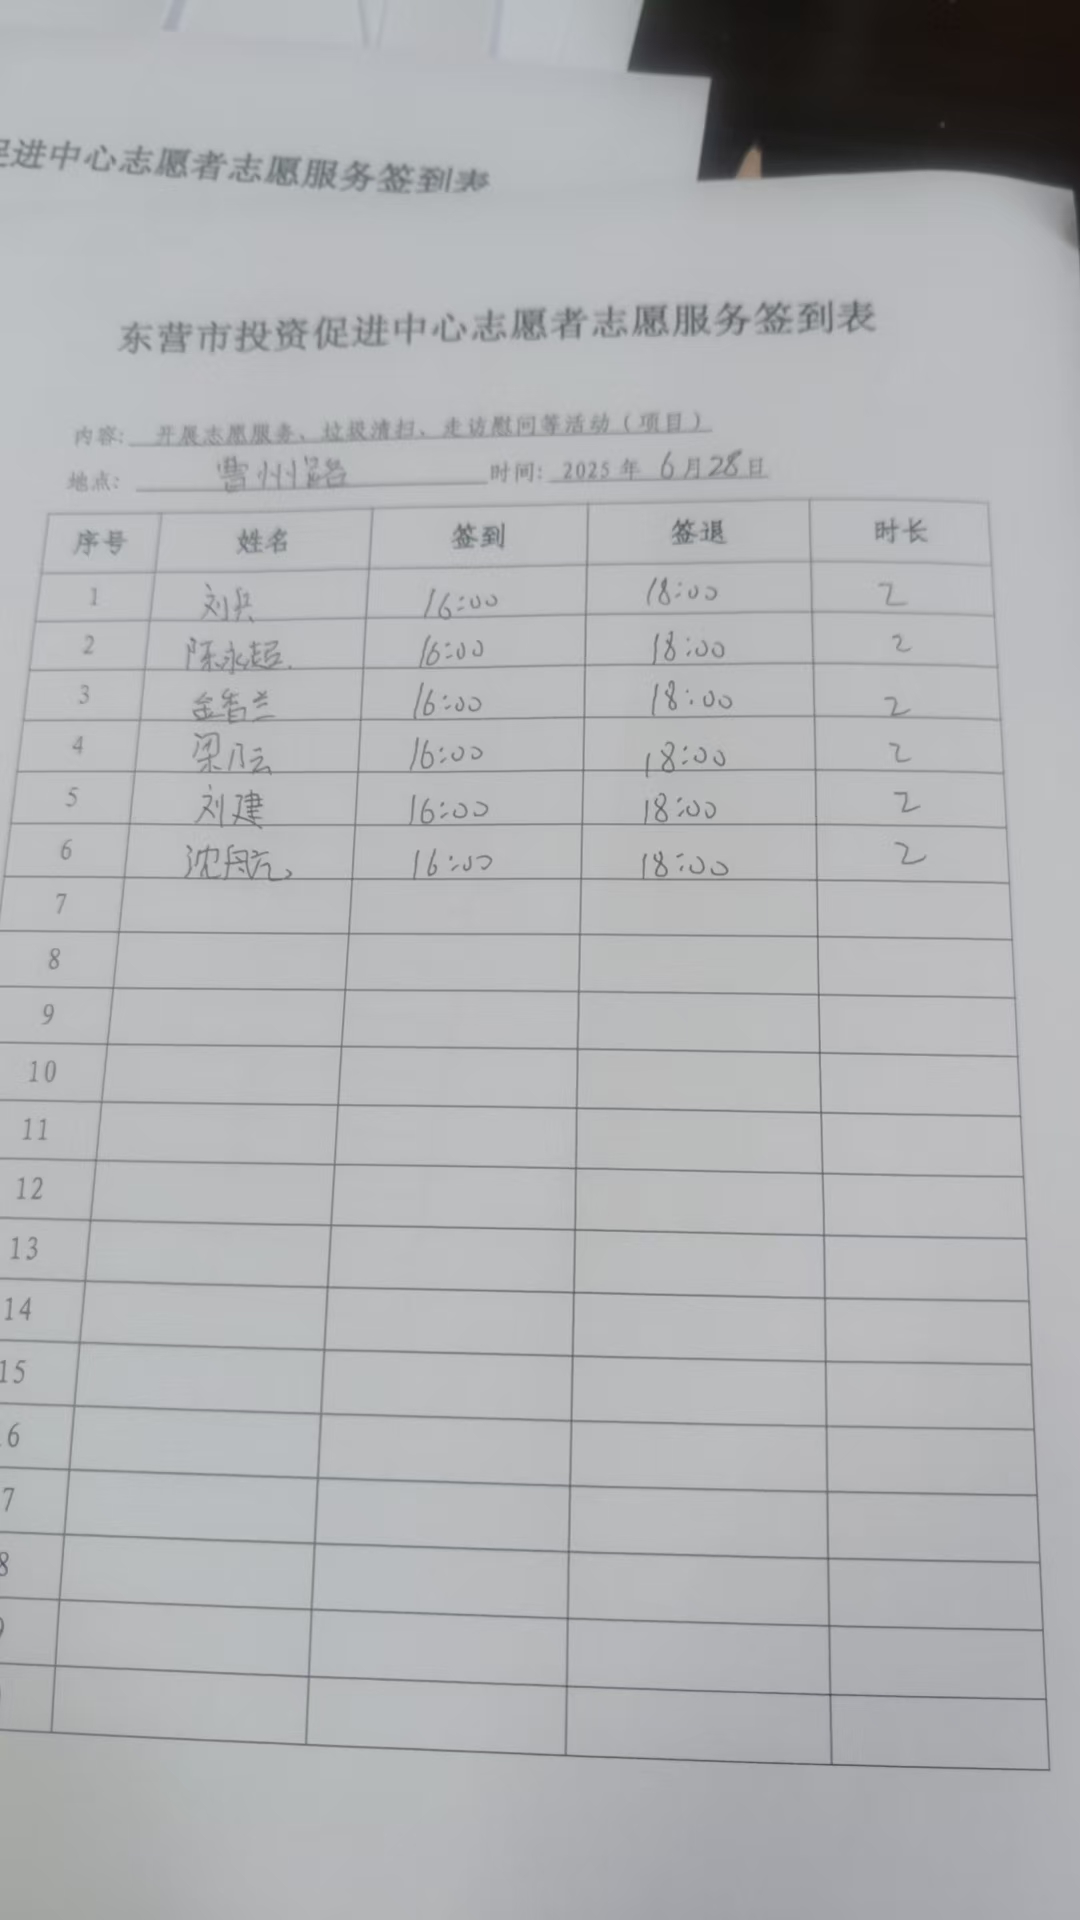 促进中心志愿者志愿服务签到表
东营市投资促进中心志愿者志愿服务签到表
内容: 开展志愿服务、垃圾清扫、走访慰问等活动（项目）
地点: 曹州路 时间: 2025 年 6月28日
序号 姓名 签到 签退 时长
1 刘兵 16:00 18:00 2
2 陈永超 16:00 18:00 2
3 金香兰 16:00 18:00 2
4 梁 16:00 18:00 2
5 刘建 16:00 18:00 2
6 沈 16:00 18:00 2
7
8
9
10
11
12
13
14
15
6
7
8